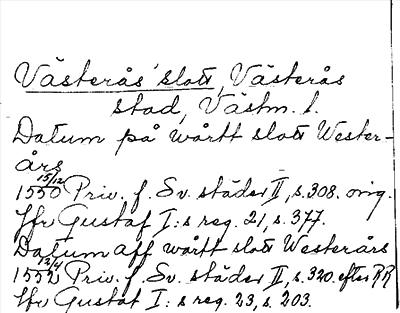 Västerås slott, Västerås
stad, Västm. l.
Datum på wårtt slott Wester-
års
15/12
1550 Priv. f. Sv. städer II, s. 308. orig.
Jfr Gustaf I:s reg. 21, s. 377.
Datum aff wårtt slott Westerårs
12/4
1552 Priv. f. Sv. städer II, s. 320. efter RR
Jfr Gustaf I:s reg. 23, s. 203.